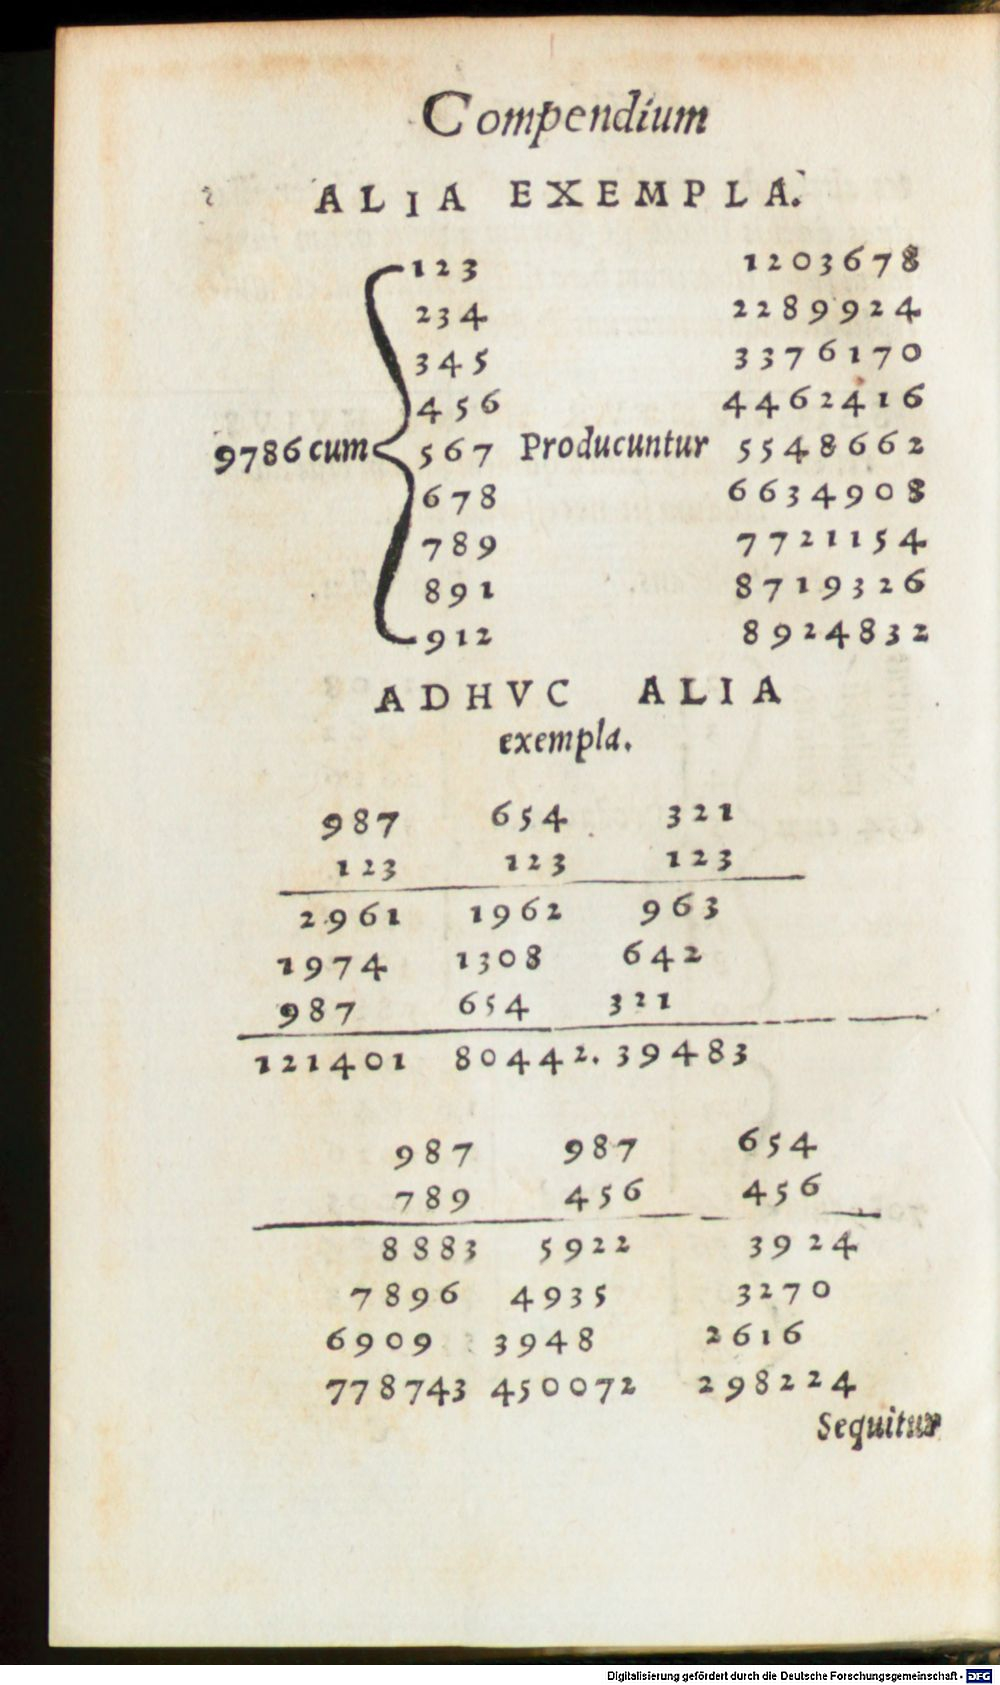 Compendium
ALIA EXEMPLA.
123 1203678
234 2289924
345 3376170
456 4462416
9786 cum 567 Producuntur 5548662
678 6634908
789 7721154
891 8719326
912 8924832
ADHVC ALIA
exempla.
987 654 321
123 123 123
2961 1962 963
1974 1308 642
987 654 321
121401 80442. 39483
987 987 654
789 456 456
8883 5922 3924
7896 4935 3270
6909 3948 2616
778743 450072 298224
Sequitur
Digitalisierung gefördert durch die Deutsche Forschungsgemeinschaft - DFG